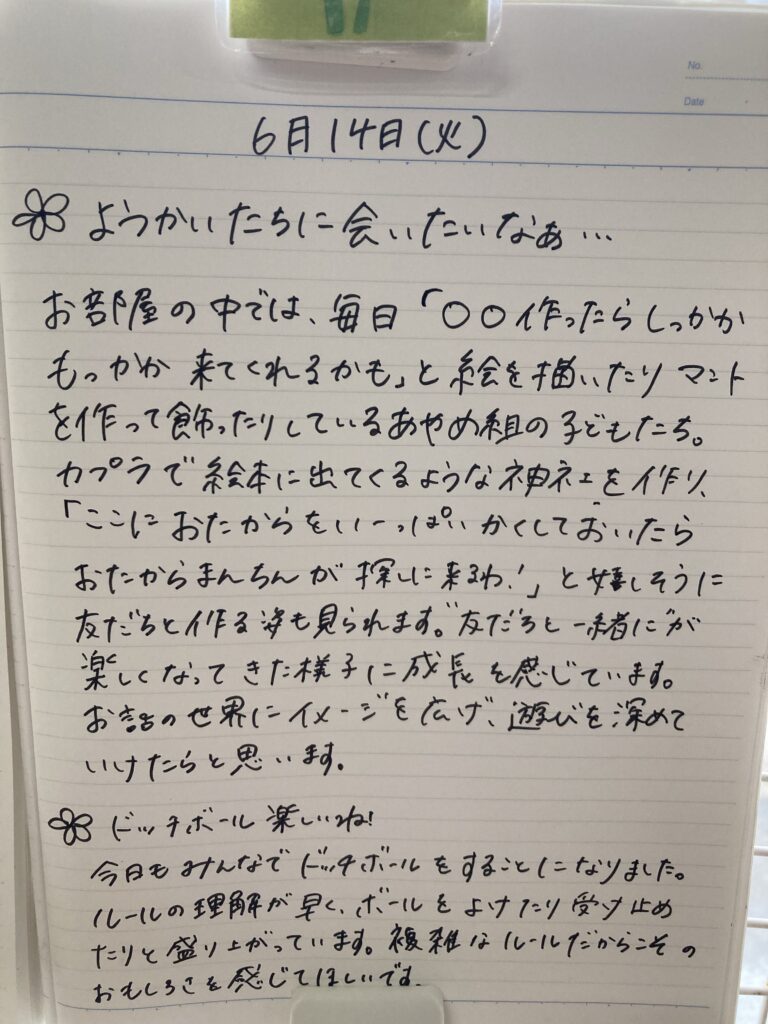 No.
Date
6月14日(火)
ようかいたちに会いたいなぁ…
お部屋の中では、毎日「○○作ったらしっかか
もっかか 来てくれるかも」と絵を描いたりマント
を作って飾ったりしているあやめ組の子どもたち。
カプラで絵本に出てくるような神社を作り、
「ここにおたからをいーっぱいかくしておいたら
おたからまんちんが探しに来るわ!」と嬉しそうに
友だちと作る姿も見られます。"友だちと一緒に"が
楽しくなってきた様子に成長を感じています。
お話の世界にイメージを広げ、遊びを深めて
いけたらと思います。
ドッチボール楽しいね!
今日もみんなでドッチボールをすることになりました。
ルールの理解が早く、ボールをよけたり受け止め
たりと盛り上がっています。複雑なルールだからこその
おもしろさを感じてほしいです。